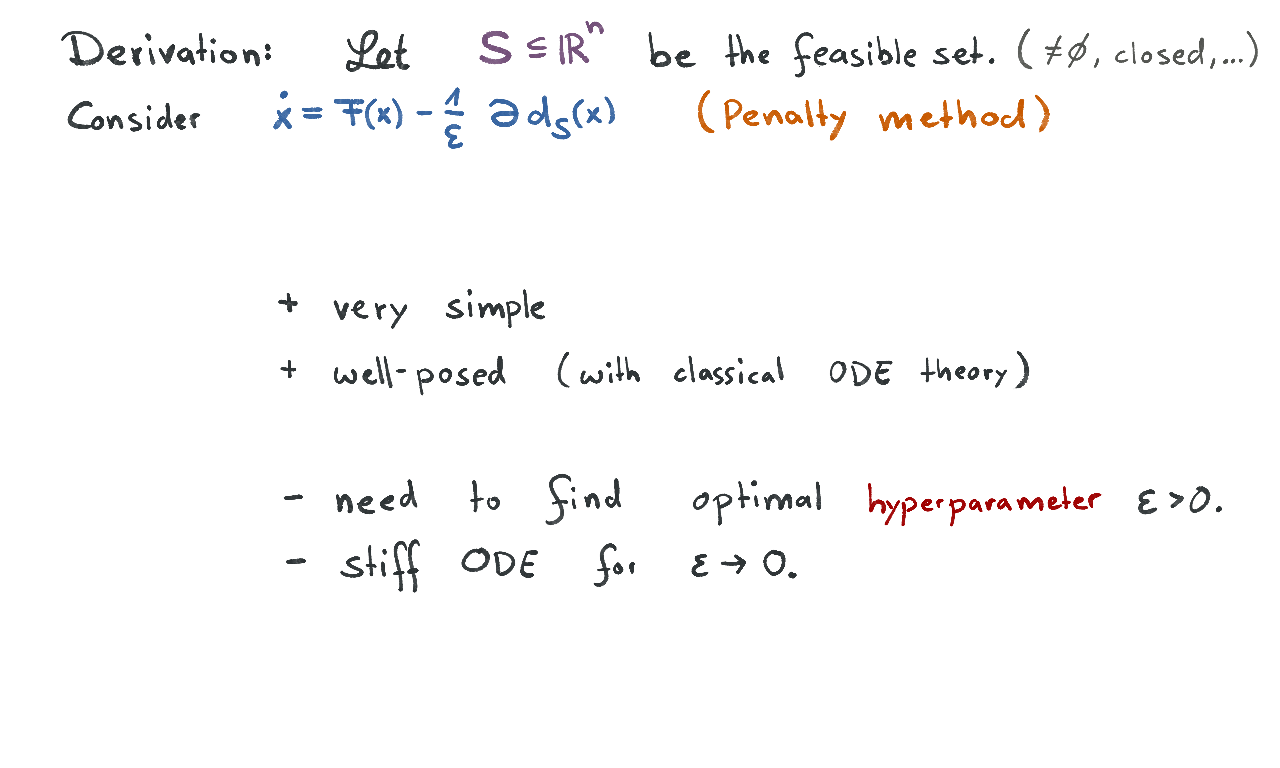 Derivation: Let S ⊆ ℝⁿ be the feasible set. (≠∅, closed,...)
Consider ẋ = F(x) - 1/ε ∂d_S(x) (Penalty method)
+ very simple
+ well-posed (with classical ODE theory)
- need to find optimal hyperparameter ε>0.
- stiff ODE for ε → 0.